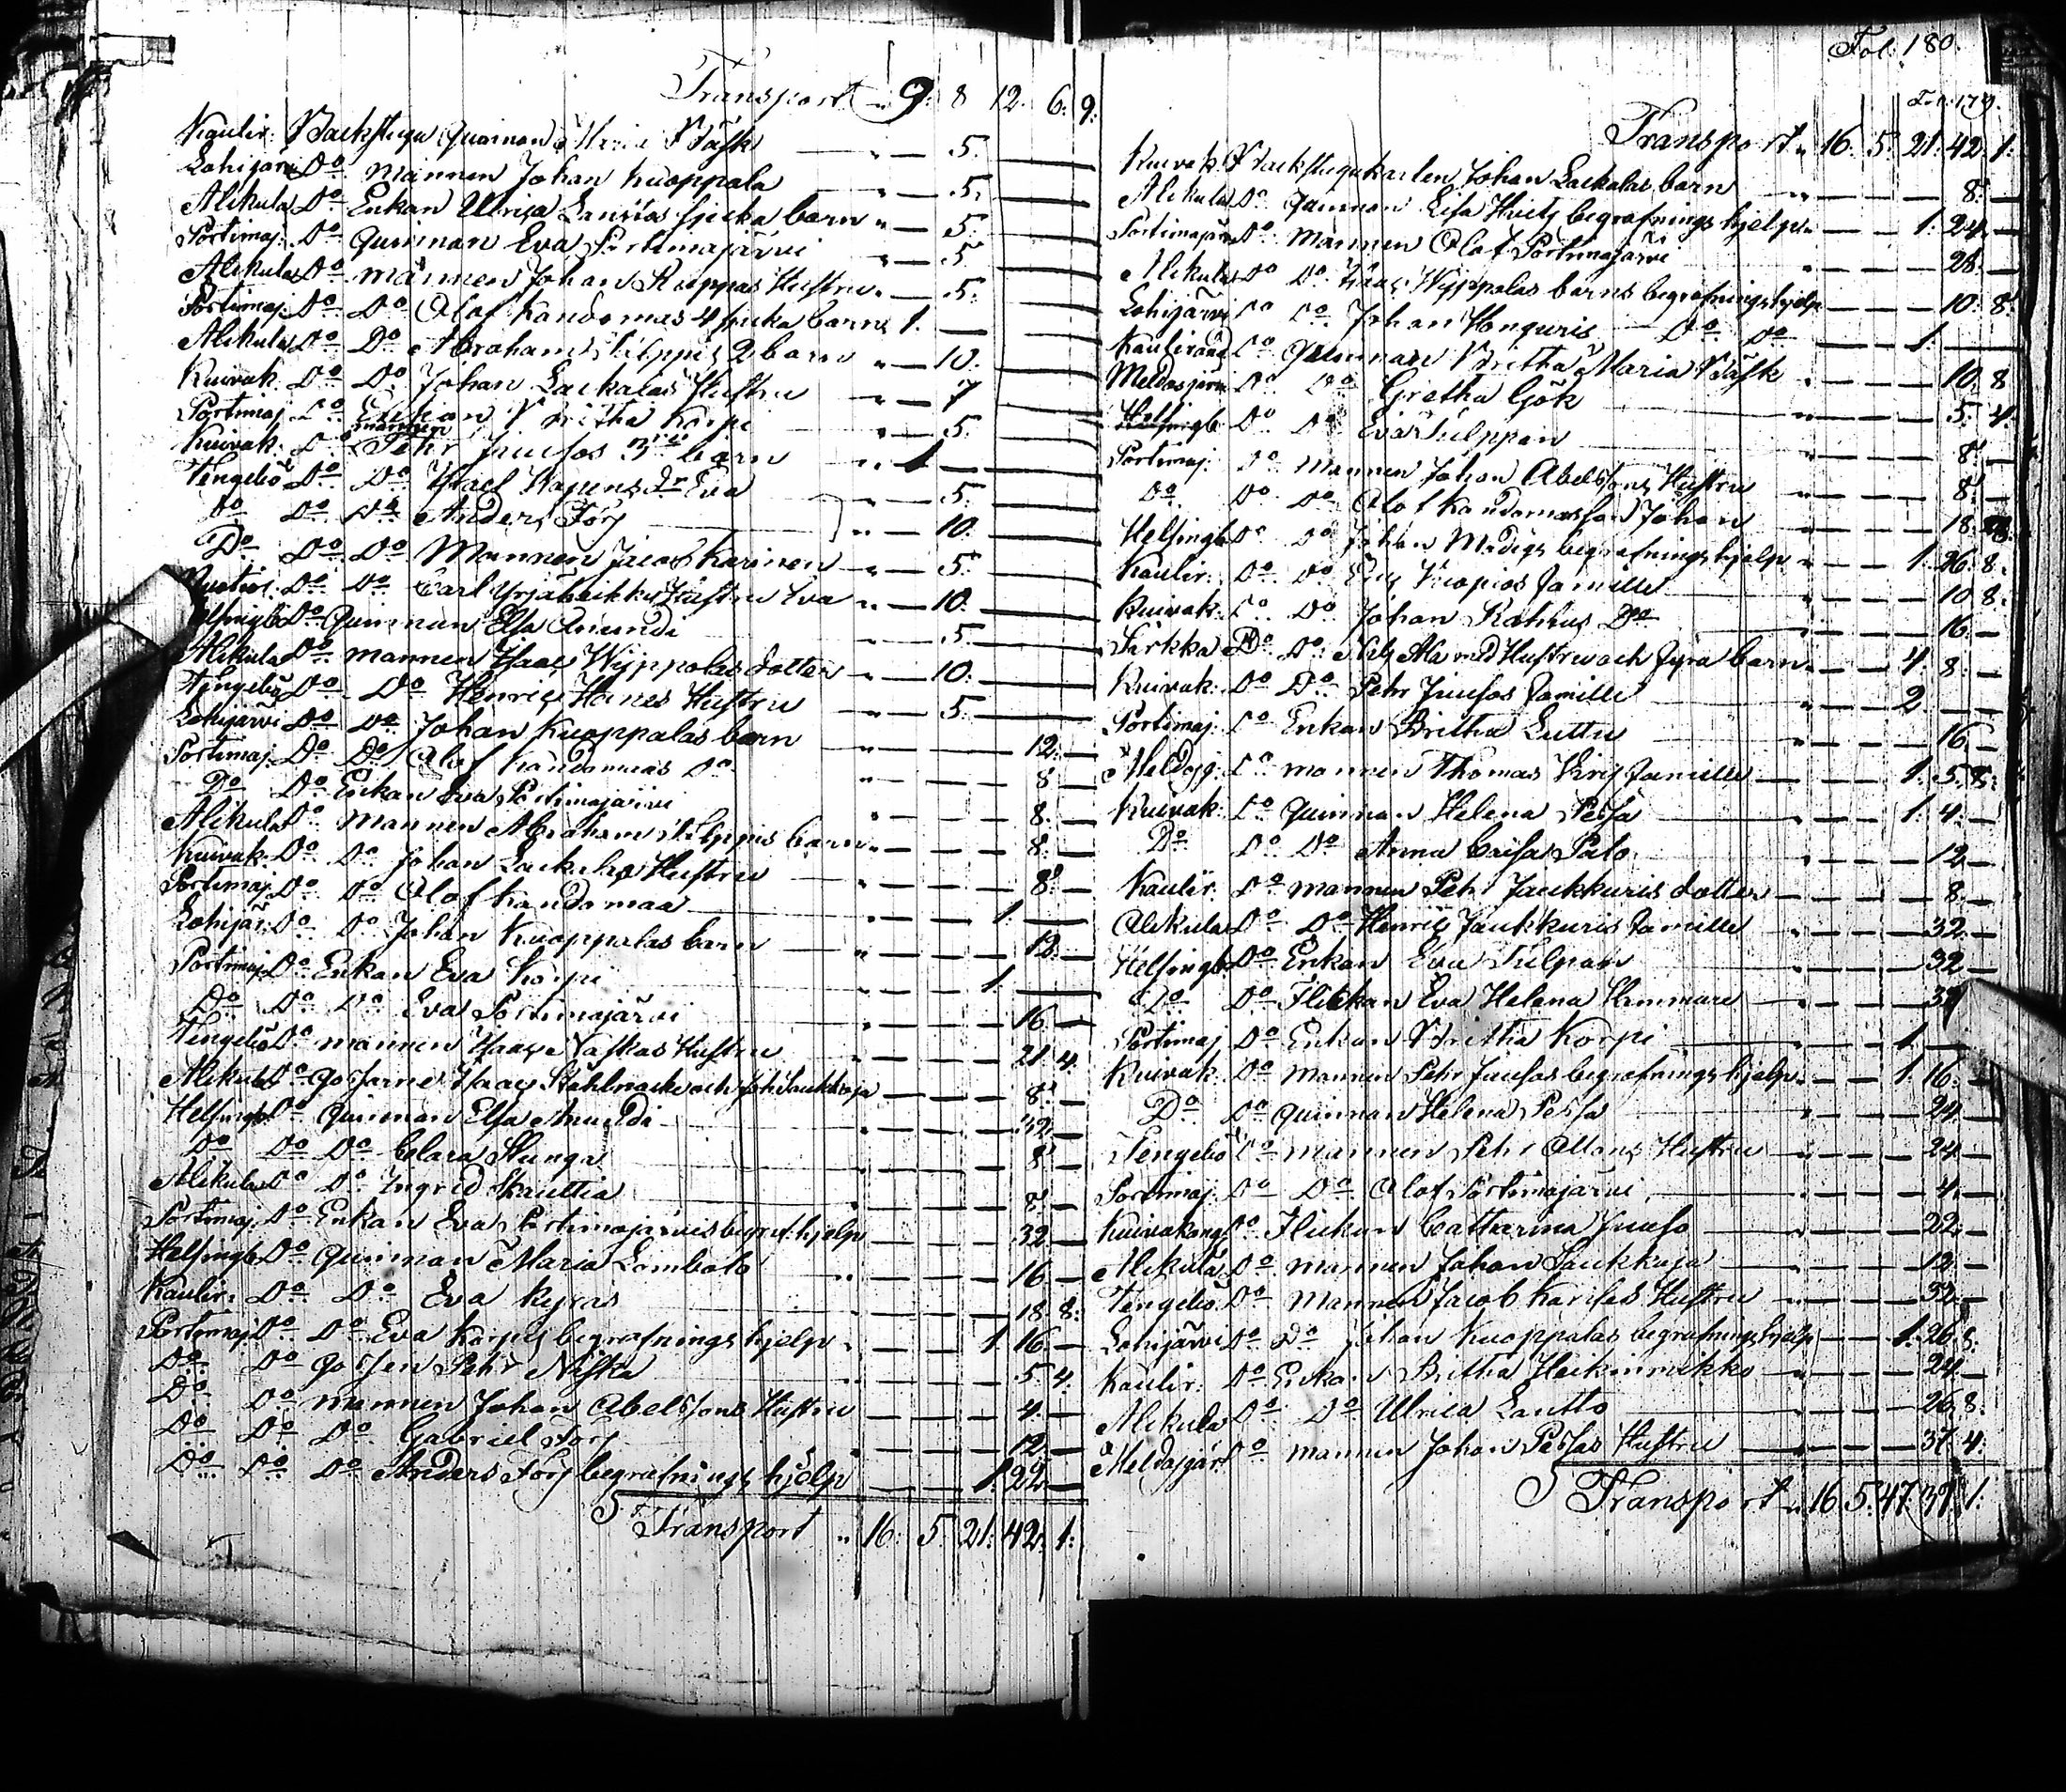 Transport " 9. 8 12. 6. 9.
Kaulir. Backstugu Quinnan Maria Bäsk " — 5. —
Lohijärvi Do mannen Johan Kuoppala " — 5. —
Alikula Do Enkan Ulrica Lauttos sjuka barn " — 5. —
Portimaj. Do Quinnan Eva Portimajärvi " — 5. —
Alikula Do mannen Johan Hustru " — 5. —
Portimaj. Do Do Olof Kandomas 4 sjuka barn 1. —
Alikula Do Do Abraham 2 barn " — 10. —
Kuivak. Do Do Johan Lackalas Hustru " — 7
Portimaj. Do Enkan Britha Korpi " — 5. —
Kuivak. Do mannen Pehr Juusos 3ne barn " 1 —
Tengeliö Do Do Israel Dr Eva " — 5. —
Do Do Do Anders Förj " — 10. —
Do Do Do Mannen Jacob Karinen " — 5. —
Do Do Carl Hustru Eva " — 10. —
Do Quinnan Elsa Anundi — 5. —
Alikula Do mannen Isaac Wyppolas dotter " — 10. —
Tengeliö Do Do Henric Hanes Hustru " — 5. —
Lohijärvi Do Do Johan Kuoppalas barn " — — 12. —
Portimaj. Do Do Olof Kandomaas Do " — — 8 —
Do Do Enkan Eva Portimajärvi " — — 8. —
Alikula Do Mannen Abraham barn " — — 8. —
Kuivak. Do Do Johan Lackalas Hustru " — — 8. —
Portimaj. Do Do Olof Kandomaa " — — 1. —
Lohijär. Do Do Johan Kuoppalas barn " — — 12. —
Portimaj. Do Enkan Eva Korpi " — — 1. —
Do Do Do Eva Portimajärvi " — — 16 —
Tengeliö Do mannen Isaac Hustru " — — 21. 4.
Alikula Do gossarne Isaac Ståhlnacke och Joh. Saukkoja — — 8. —
Helsingb. Do Quinnan Elsa Anundi " — — 42. —
Do Do Do Clara Stunga " — — 8 —
Alikula Do Do Ingrid Skauttia " — — 8 —
Portimaj. Do Enkan Eva Portimajärvis begraf. hjelp — — 32. —
Helsingb. Do Quinnan Maria Lombolo " — — 16 —
Kaulir. Do Do Eva Kyras " — — 18 8.
Portimaj. Do Do Eva Korpis begrafnings hjelp " — — 1. 16 —
Do Do gossen Pehr Niska " — — 5. 4.
Do Do mannen Johan Abelssons Hustru — — 4. —
Do Do Do Gabriel Förj " — — 12. —
Do Do Do Anders Förj begrafnings hjelp — — 1. 22. —
Transport " 16. 5. 21. 42. 1.
Fol. 180.
Fol. 179.
Transport " 16. 5. 21. 42. 1.
Kuivak. Backstugukarlen Johan Lackalas barn " — — 8. —
Alikula Do Quinnan Lisa Hvits begrafnings hjelp " — — 1. 24. —
Portimajär. Do Mannen Olof Portimajärvi " — — 28. —
Alikula Do Do Isaac Wyppolas barns begrafningshjelp — — 10. 8.
Lohijärvi Do Do Johan Honguris Do Do — — 1. —
Kauliranda Do Quinnan Britha Maria Bäsk " — — 10. 8
Meldosjärvi Do Do Gretha Gök " — — 5. 4.
Helsingb Do Do Eva Tulppan " — — 8. —
Portimaj. Do Mannen Johan Abelssons Hustru " — — 8. —
Do Do Do Olof Kandomas son Johan " — — 18.
Helsingb Do Do Johan begrafnings hjelp " — — 1. 26. 8.
Kaulir. Do Do Eric Kuopios Familie " — — 10. 8.
Kuivak. Do Do Johan Do " — — 16 —
Särkka Do Do Nils Ala med Hustru och fyra barn " — 4. 8. —
Kuivak. Do Do Pehr Juusos Familie " — — 2. —
Portimaj. Do Enkan Britha Luttu " — — 16 —
Meldosj. Do mannen Thomas Familie — — 1. 5. 8.
Kuivak. Do Quinnan Helena Pessa " — — 1. 4. —
Do Do Do Anna Caisa Palo " — — 12 —
Kaulir. Do mannen Pehr Jaukkuris dotter — — 8. —
Alikula Do Do Henric Jaukkuris Familie — — 32. —
Helsingb. Do Enkan Eva Tulpan — — 32 —
Do Do Flickan Eva Helena Himmare — — 37
Portimaj Do Enkan Britha Korpi — — 1. —
Kuivak. Do Mannen Pehr Juusos begrafnings hjelp " — — 1. 16. —
Do Do Quinnan Helena Pessa " — — 24. —
Tengeliö Do Mannen Pehr Hustru " — — 24. —
Portimaj. Do Do Olof Portimajärvi " — — 4. —
Kuivakang. Do Flickan Catharina Juuso — — 22. —
Alikula Do Mannen Johan Saukkoja — — 12. —
Tengeliö Do Mannen Jacob Hustru " — — 32. —
Lohijärvi Do Do Johan Kuoppalas begrafningshjelp — — 1. 26. 8.
Kaulir. Do Enkan Britha Heikinmikko " — — 24. —
Alikula Do Do Ulrica Lautto — — 26. 8.
Meldosjär. Do mannen Johan Pessas Hustru — — 37. 4.
Transport " 16. 5. 47. 37. 1.